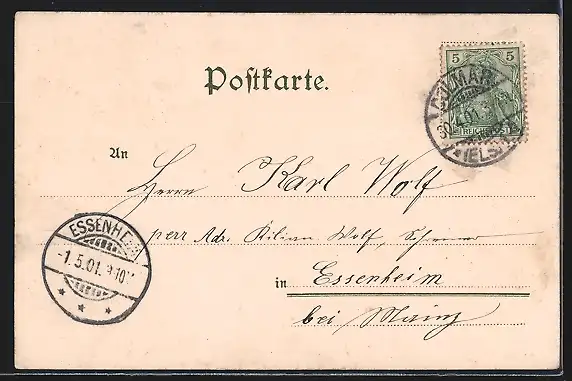 Postkarte.
5 5
COLMAR
(ELS.)
REICHSPOST
An
Herrn Karl Wolf
per Adr. Kilian Wolf, Schreiner
ESSENHEIM
-1.5.01.
in Essenheim
bei Mainz